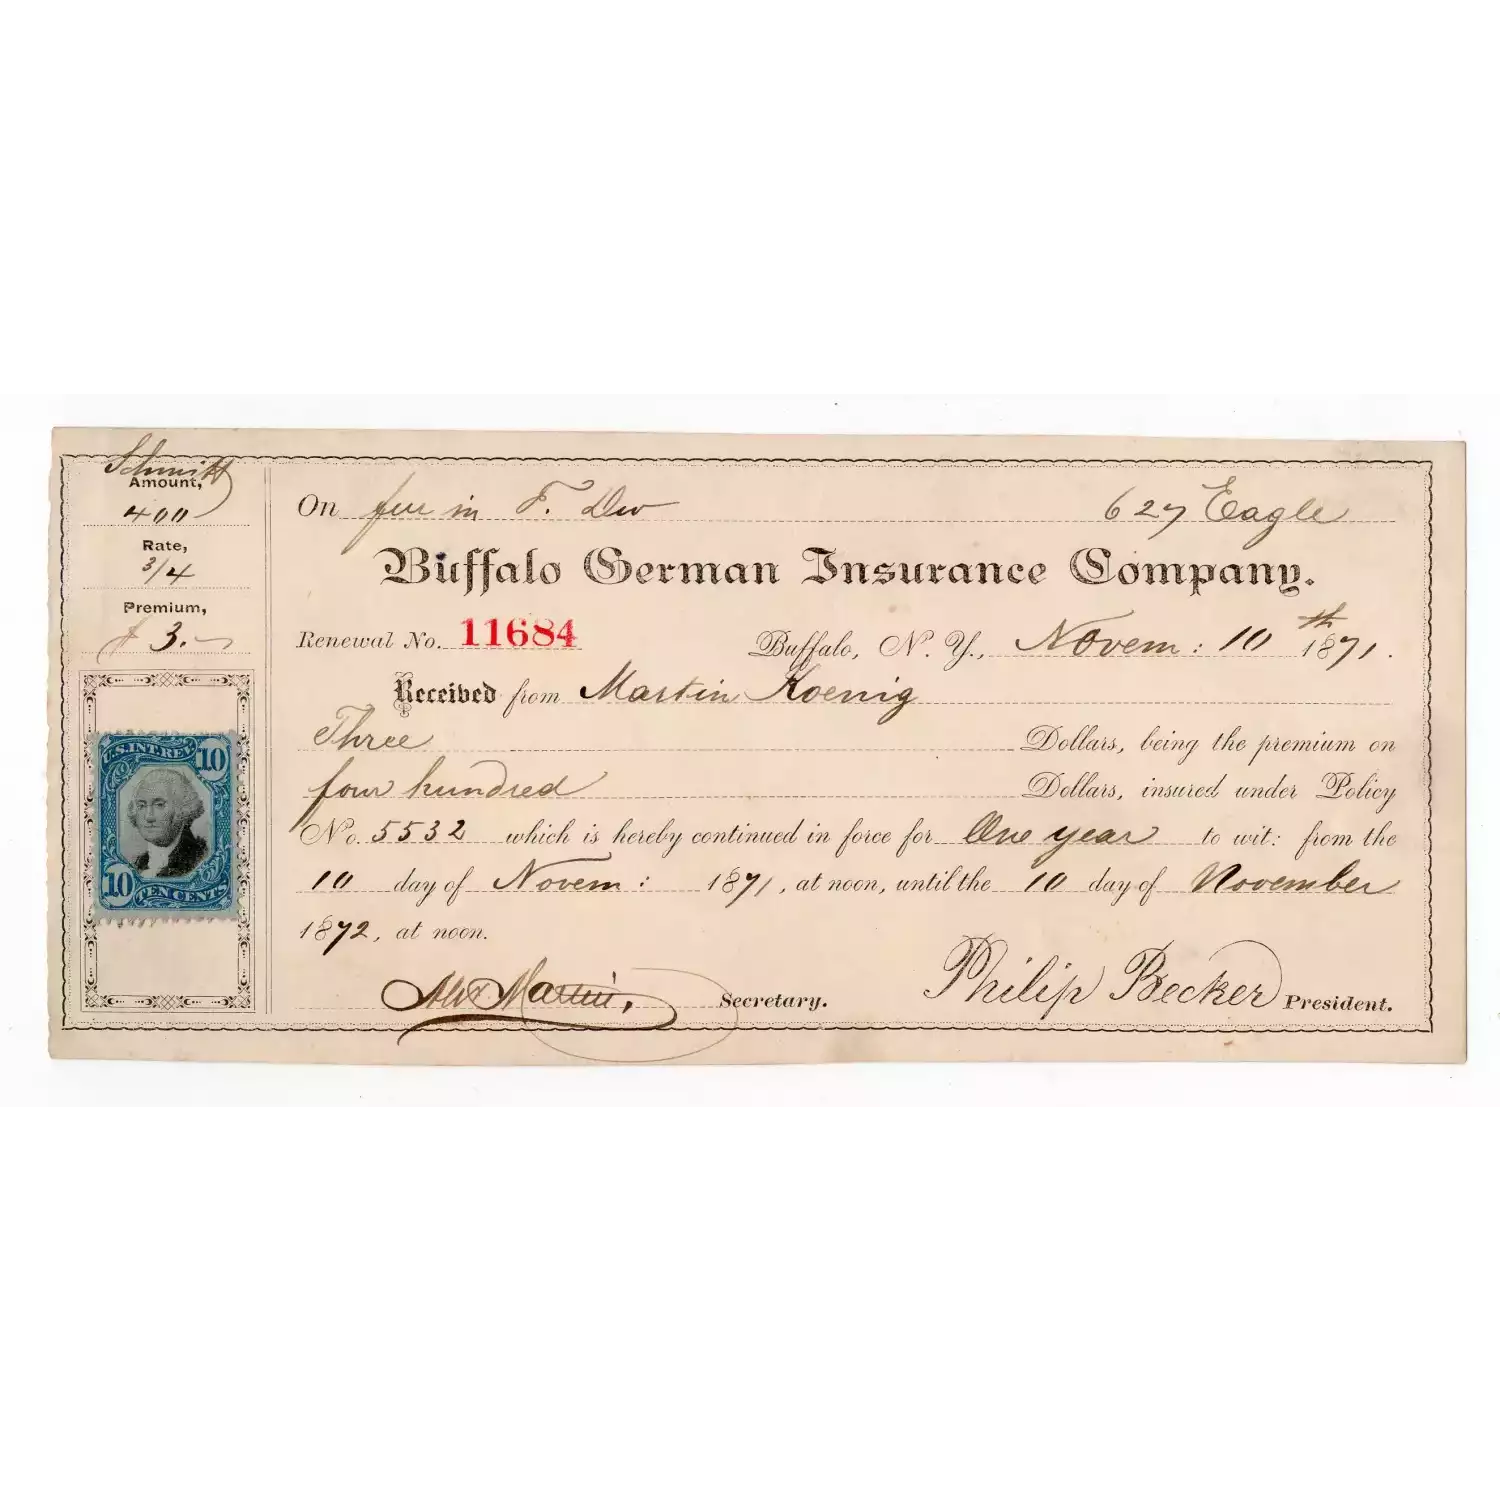 Schmitt
Amount,
400
Rate,
3/4
Premium,
$ 3.-
U.S. INT. REV. 10
10 TEN CENTS
On fur in F. Dw 627 Eagle
Buffalo German Insurance Company.
Renewal No. 11684 Buffalo, N. Y., Novem: 10th 1871.
Received from Martin Koenig
Three Dollars, being the premium on
four hundred Dollars, insured under Policy
No. 5532 which is hereby continued in force for One year to wit: from the
10 day of Novem: 1871, at noon, until the 10 day of November
1872, at noon.
Alex Martin, Secretary. Philip Becker President.